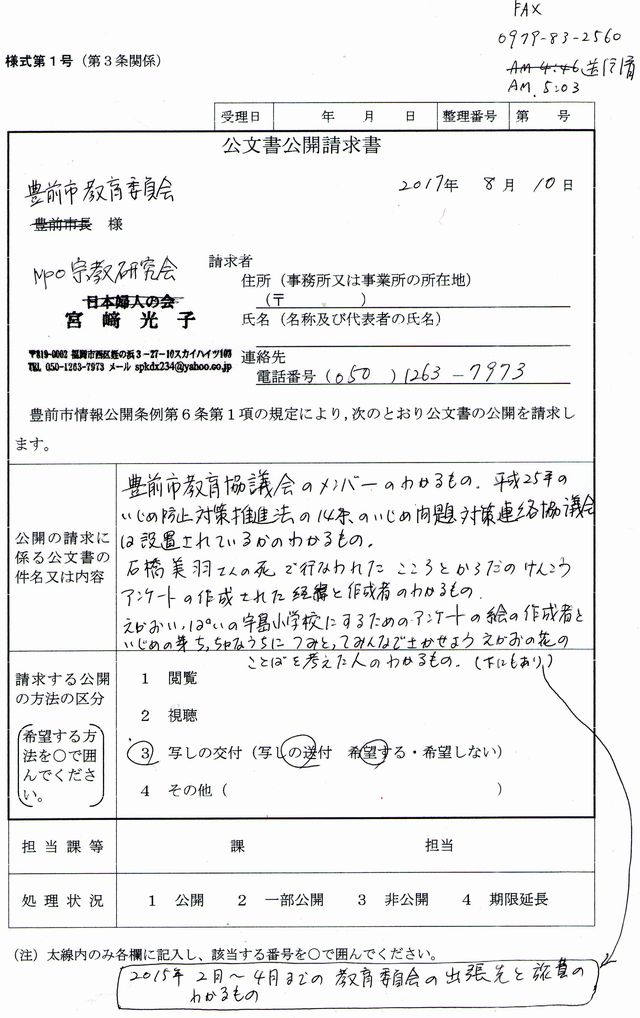 FAX
0979-83-2560
AM 4:46 送信済
AM. 5:03
様式第１号（第３条関係）
受理日 年 月 日 整理番号 第 号
公文書公開請求書
2017年 8月 10日
豊前市教育委員会
豊前市長 様
NPO宗教研究会
日本婦人の会
宮﨑光子
〒819-0002 福岡市西区姪の浜3-27-10スカイハイツ103
TEL 050-1263-7973 メール spkdx234@yahoo.co.jp
請求者
住所（事務所又は事業所の所在地）
（〒 ）
氏名（名称及び代表者の氏名）
連絡先
電話番号（050）1263-7973
豊前市情報公開条例第６条第１項の規定により，次のとおり公文書の公開を請求し
ます。
公開の請求に
係る公文書の
件名又は内容
豊前市教育協議会のメンバーのわかるもの。平成25年の
いじめ防止対策推進法の14条のいじめ問題対策連絡協議会
は設置されているかのわかるもの。
石橋美羽さんの死で行なわれた こころとからだのけんこう
アンケートの作成された経緯と作成者のわかるもの。
えがおいっぱいの宇島小学校にするためのアンケートの絵の作成者と
いじめの芽ちっちゃなうちに つみとってみんなでさかせよう えがおの花の
ことばを考えた人のわかるもの。（下にもあり）
請求する公開
の方法の区分
希望する方
法を○で囲
んでくださ
い。
１ 閲覧
２ 視聴
３ 写しの交付（写しの送付 希望する・希望しない）
４ その他（ ）
担当課等 課 担当
処理状況 １ 公開 ２ 一部公開 ３ 非公開 ４ 期限延長
（注）太線内のみ各欄に記入し、該当する番号を○で囲んでください。
2015年 2月～4月までの 教育委員会の出張先と旅費の
わかるもの